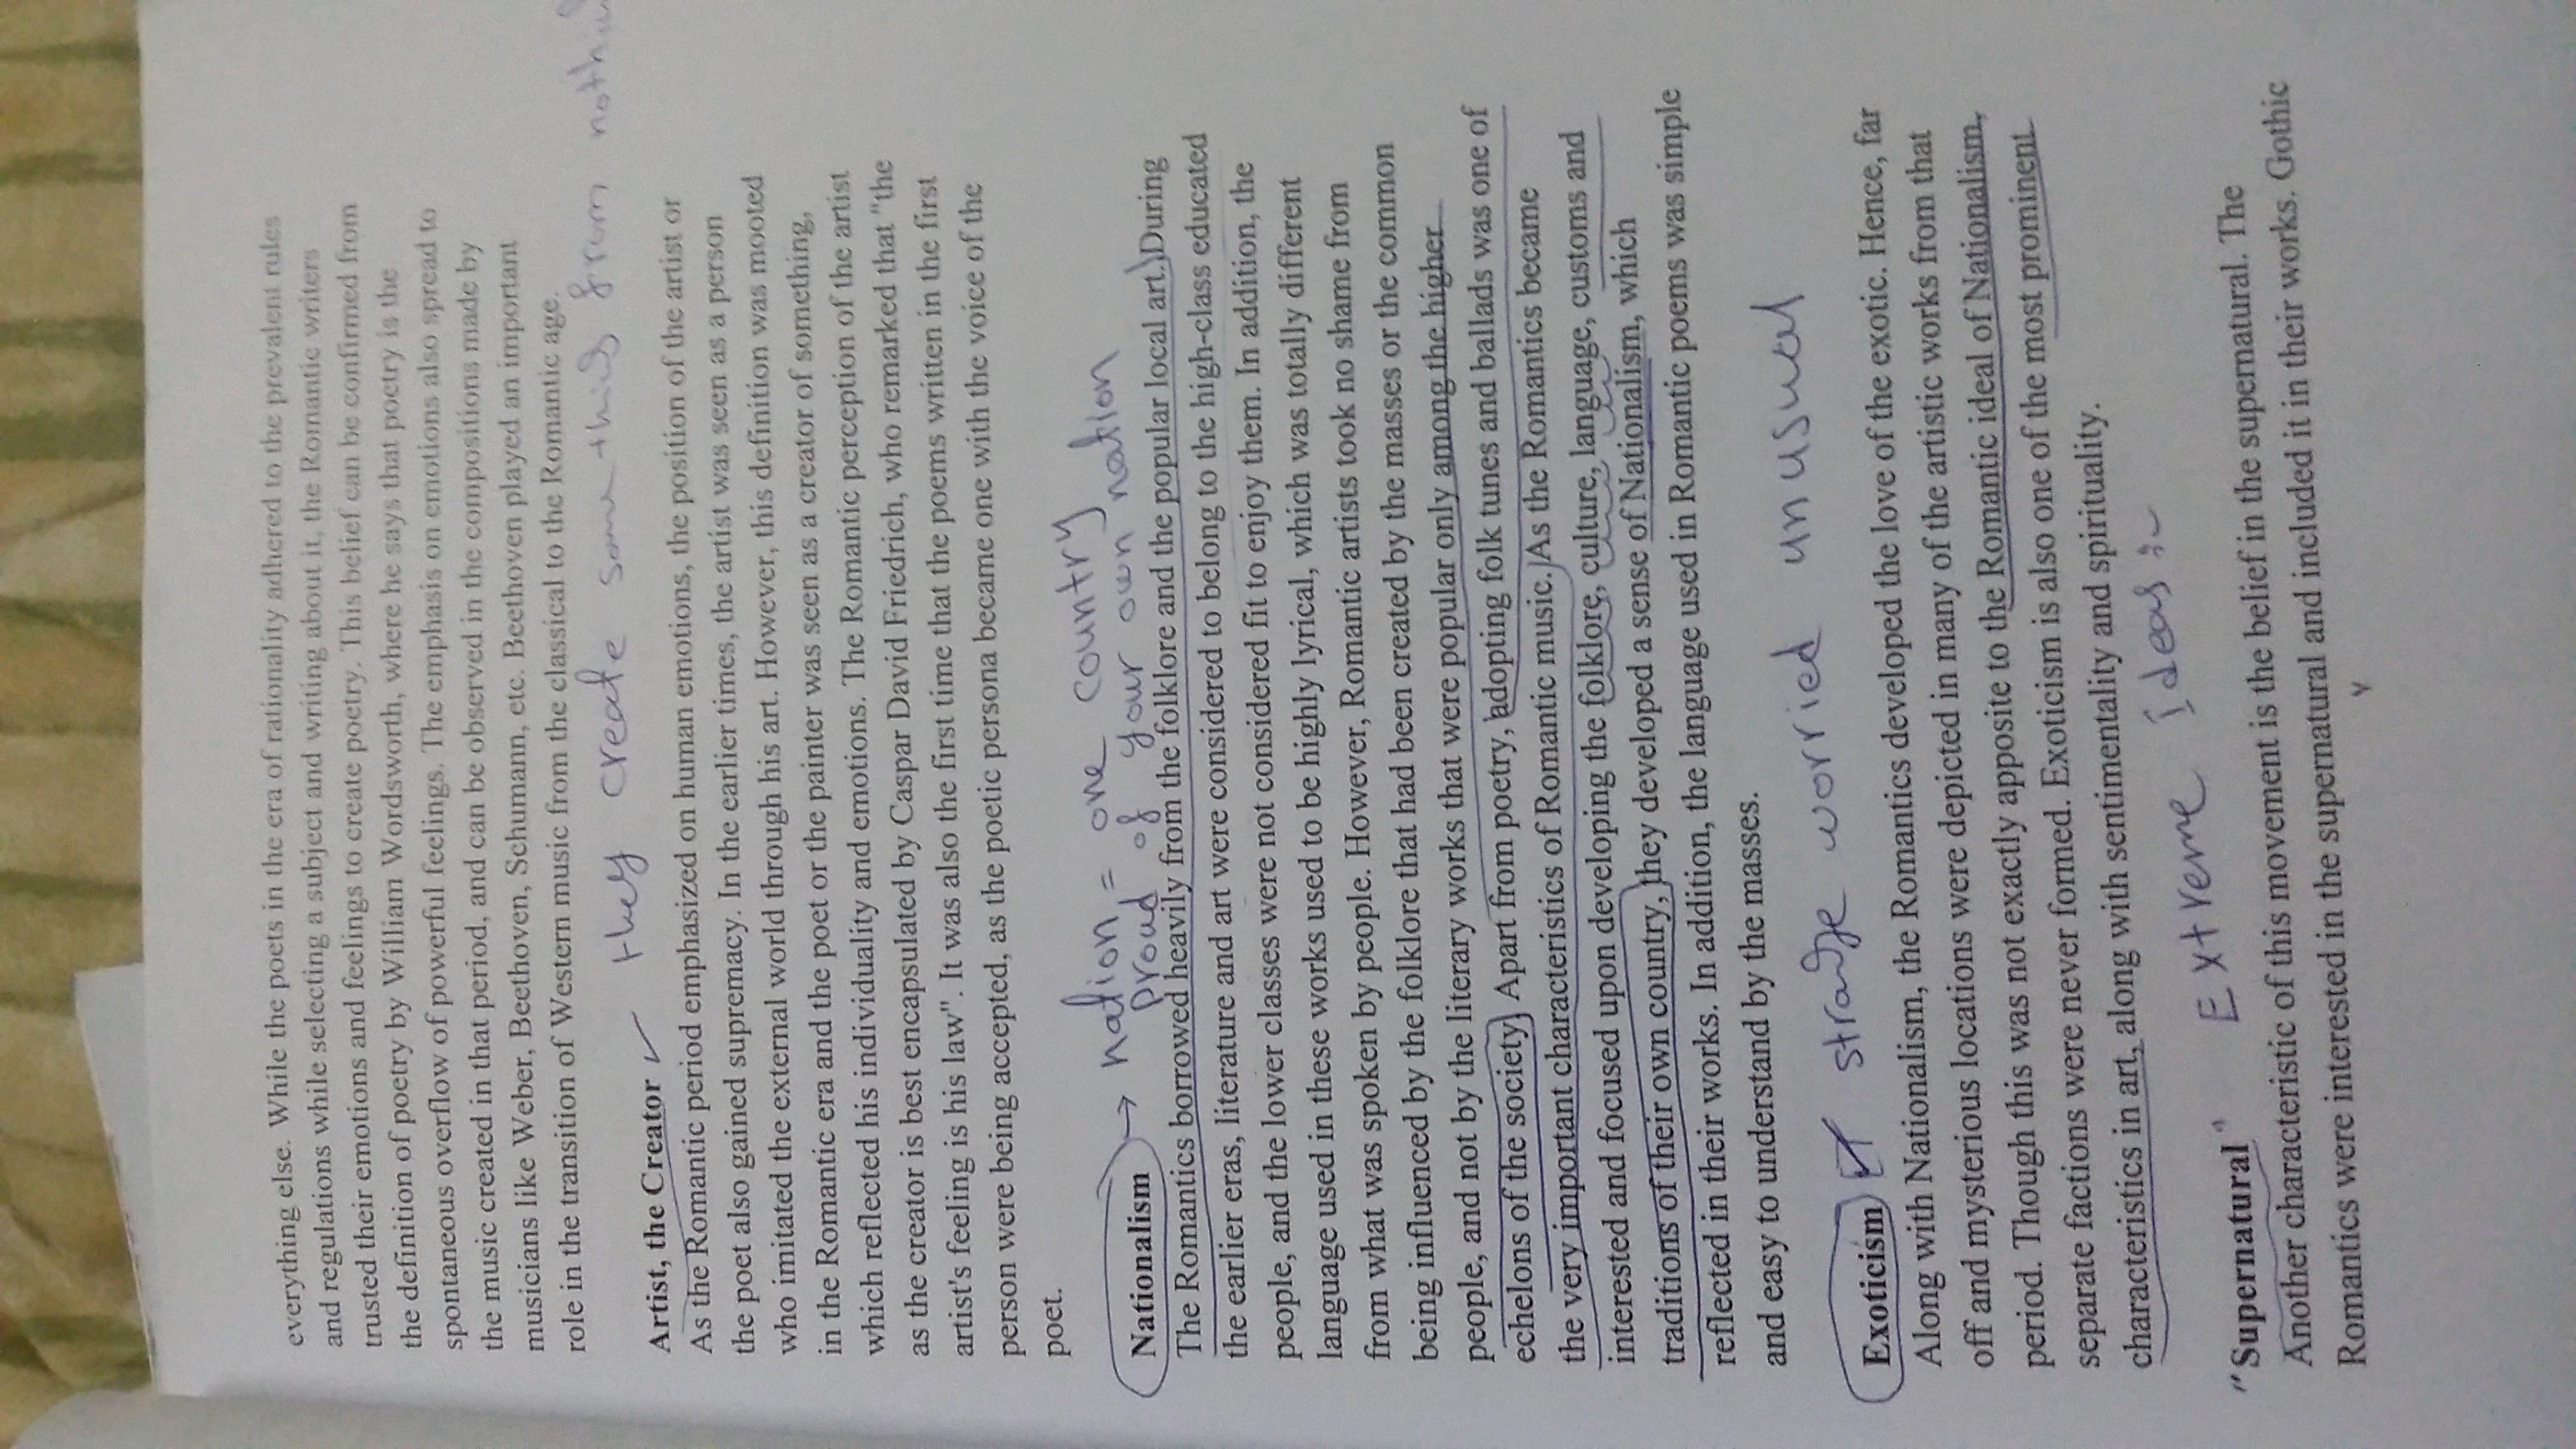 everything else. While the poets in the era of rationality adhered to the prevalent rules
and regulations while selecting a subject and writing about it, the Romantic writers
trusted their emotions and feelings to create poetry. This belief can be confirmed from
the definition of poetry by William Wordsworth, where he says that poetry is the
spontaneous overflow of powerful feelings. The emphasis on emotions also spread to
the music created in that period, and can be observed in the compositions made by
musicians like Weber, Beethoven, Schumann, etc. Beethoven played an important
role in the transition of Western music from the classical to the Romantic age.
they create something from nothin
Artist, the Creator
As the Romantic period emphasized on human emotions, the position of the artist or
the poet also gained supremacy. In the earlier times, the artist was seen as a person
who imitated the external world through his art. However, this definition was mooted
in the Romantic era and the poet or the painter was seen as a creator of something,
which reflected his individuality and emotions. The Romantic perception of the artist
as the creator is best encapsulated by Caspar David Friedrich, who remarked that "the
artist's feeling is his law". It was also the first time that the poems written in the first
person were being accepted, as the poetic persona became one with the voice of the
poet.
nation = one country
proud of your own nation
Nationalism
The Romantics borrowed heavily from the folklore and the popular local art. During
the earlier eras, literature and art were considered to belong to the high-class educated
people, and the lower classes were not considered fit to enjoy them. In addition, the
language used in these works used to be highly lyrical, which was totally different
from what was spoken by people. However, Romantic artists took no shame from
being influenced by the folklore that had been created by the masses or the common
people, and not by the literary works that were popular only among the higher
echelons of the society. Apart from poetry, adopting folk tunes and ballads was one of
the very important characteristics of Romantic music. As the Romantics became
interested and focused upon developing the folklore, culture, language, customs and
traditions of their own country, they developed a sense of Nationalism, which
reflected in their works. In addition, the language used in Romantic poems was simple
and easy to understand by the masses.
Exoticism strange worried unusual
Along with Nationalism, the Romantics developed the love of the exotic. Hence, far
off and mysterious locations were depicted in many of the artistic works from that
period. Though this was not exactly apposite to the Romantic ideal of Nationalism,
separate factions were never formed. Exoticism is also one of the most prominent
characteristics in art, along with sentimentality and spirituality.
Extreme ideas
"Supernatural"
Another characteristic of this movement is the belief in the supernatural. The
Romantics were interested in the supernatural and included it in their works. Gothic